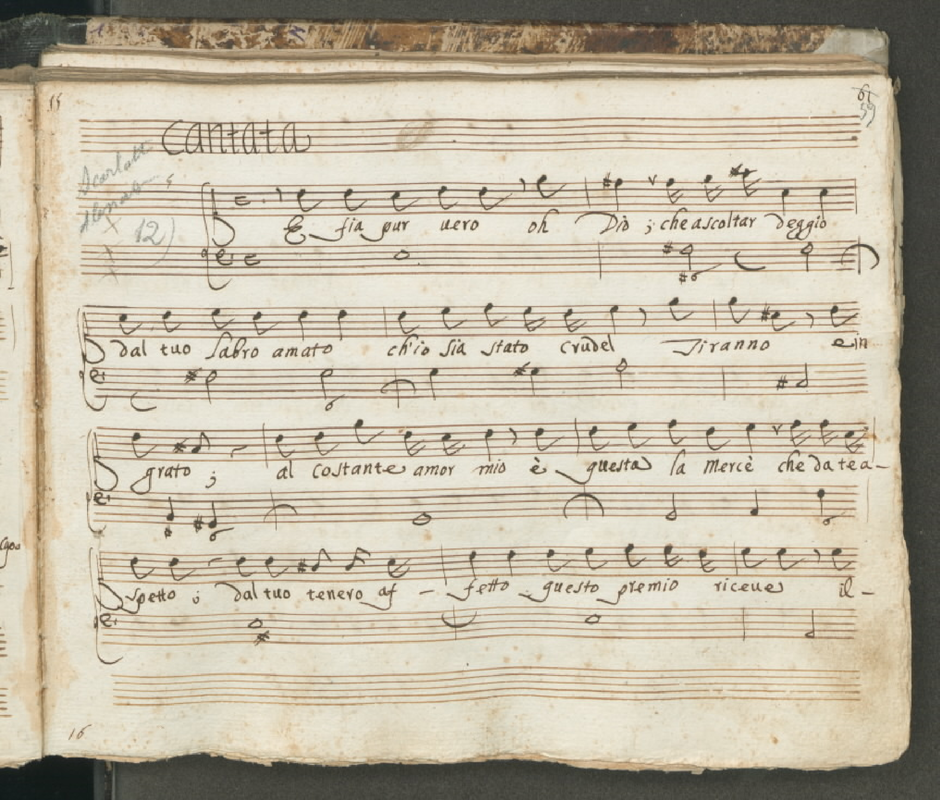 55
61
59
Cantata
Scarlatti
12)
E sia pur uero oh Dio ; che ascoltar deggio
dal tuo labro amato ch'io sia stato crudel Tiranno e in
grato ; al costante amor mio è questa la Mercè che da te a-
spetto ; dal tuo tenero af - fetto questo premio riceue il -
16